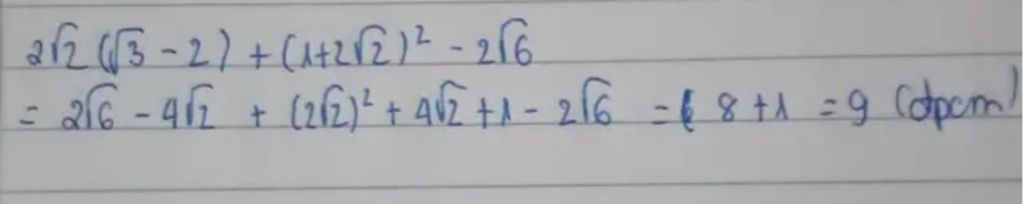 2√2 (√3 - 2) + (1+2√2)² - 2√6
= 2√6 - 4√2 + (2√2)² + 4√2 + 1 - 2√6 = 8 + 1 = 9 (đpcm)